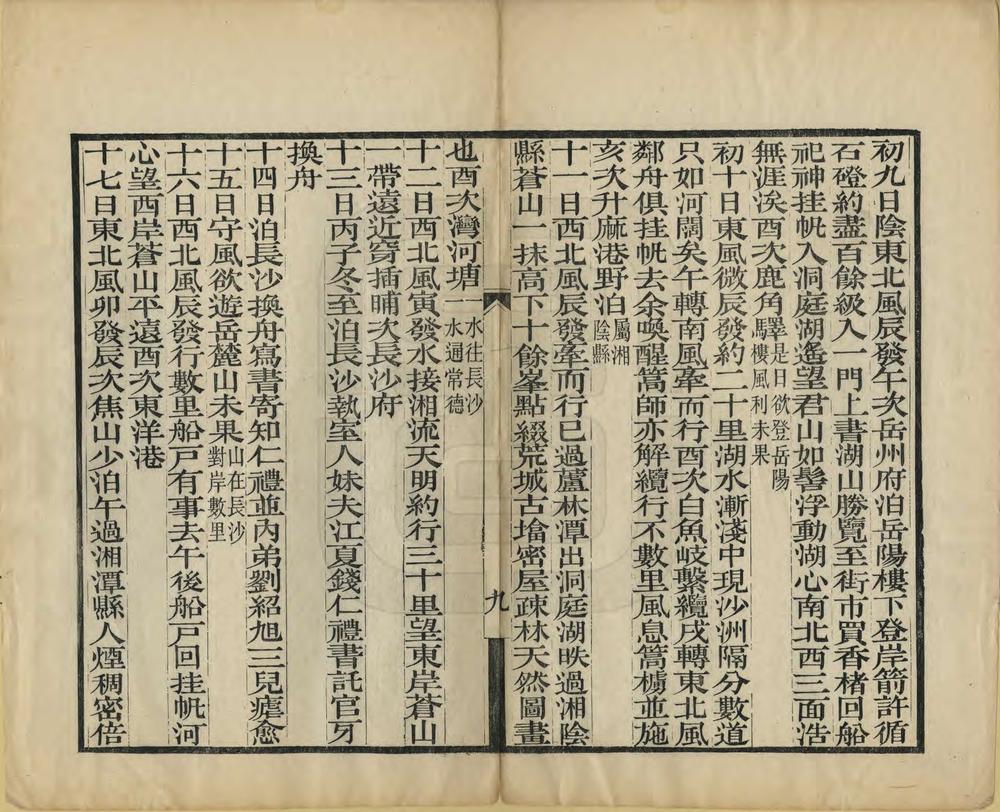 初九日陰東北風辰發午次岳州府泊岳陽樓下登岸箭許循
石磴約盡百餘級入一門上書湖山勝覽至街市買香楮回船
祀神挂帆入洞庭湖遙望君山如髻浮動湖心南北西三面浩
無涯涘酉次鹿角驛是日欲登岳陽
樓風利未果
初十日東風微辰發約二十里湖水漸淺中現沙洲隔分數道
只如河闊矣午轉南風牽而行酉次白魚岐繫纜戌轉東北風
鄰舟俱挂帆去余喚醒篙師亦解纜行不數里風息篙櫓並施
亥次升麻港野泊屬湘
陰縣
十一日西北風辰發牽而行已過蘆林潭出洞庭湖昳過湘陰
縣蒼山一抹高下十餘峯點綴荒城古墖密屋疎林天然圖畫
九
也酉次灣河塘一水往長沙
一水通常德
十二日西北風寅發水接湘流天明約行三十里望東岸蒼山
一帶遠近穿插晡次長沙府
十三日丙子冬至泊長沙執室人妹夫江夏錢仁禮書託官牙
換舟
十四日泊長沙換舟寫書寄知仁禮並內弟劉紹旭三兒瘧愈
十五日守風欲遊岳麓山未果山在長沙
對岸數里
十六日西北風辰發行數里船戸有事去午後船戸回挂帆河
心望西岸蒼山平遠酉次東洋港
十七日東北風卯發辰次焦山少泊午過湘潭縣人煙稠密倍